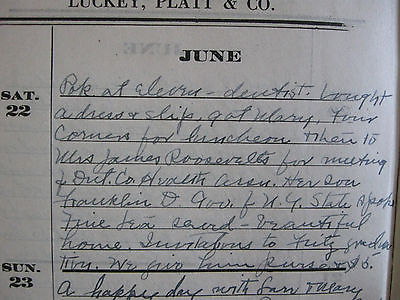 LUCKEY, PLATT & CO.
JUNE
SAT.
22
Pok at eleven - dentist. Bought
a dress & slip. got Mary, Four
Corners for luncheon then to
Mrs James Roosevelts for meeting
of Dut. Co Health Assn. Her son
Franklin D. Gov. of N.Y. State spoke
Fine tea served - beautiful
home. Invitations to Fritz gradua
tion. We give him purse & $5.
SUN.
23
A happy day with Sam